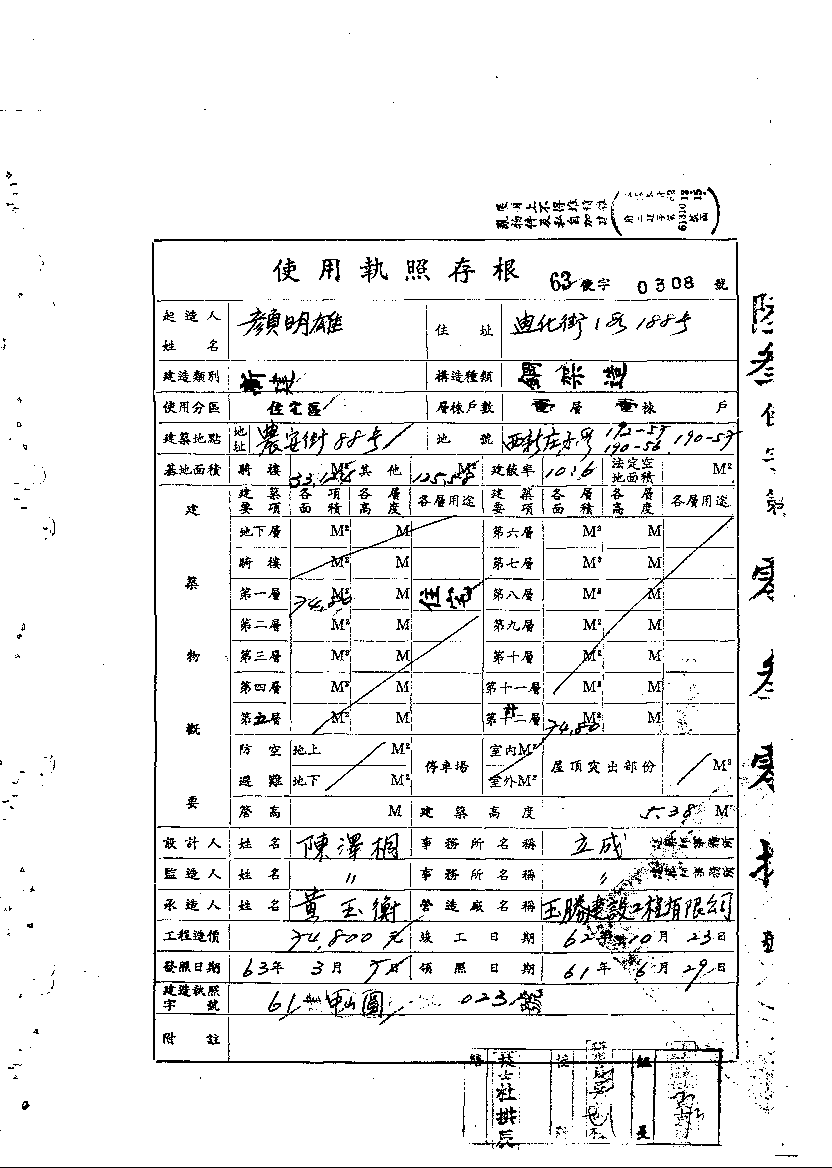 使用執照存根 63使字 0308 號
起造人姓名 顏明雄 住址 迪化街1段188号
建造類別 新建 構造種類 鋼架造
使用分區 住宅區 層棟戶數 壹層 壹棟 戶
建築地點 地址 農安街88号 地號 192-57 190-56 190-57
基地面積 騎樓 M² 其他 M² 建蔽率 法定空地面積 M²
建築物概要 建築要項 各項面積 各層高度 各層用途 建築要項 各層面積 各層高度 各層用途
地下層 M² M 第六層 M² M
騎樓 M² M 第七層 M² M
第一層 74.80 M² M 住宅 第八層 M² M
第二層 M² M 第九層 M² M
第三層 M² M 第十層 M² M
第四層 M² M 第十一層 M² M
第五層 M² M 第十二層 計 74.80 M² M
防空避難 地上 M² 地下 M² 停車場 室內M² 室外M² 屋頂突出部份 M²
簷高 M 建築高度 5.38 M
設計人 姓名 陳澤桐 事務所名稱 立成
監造人 姓名 〃 事務所名稱 〃
承造人 姓名 黃玉衡 營造廠名稱 玉勝建設工程有限公司
工程造價 74,800元 竣工日期 62年10月23日
發照日期 63年3月5日 領照日期 61年6月29日
建造執照字號 61 023
附註